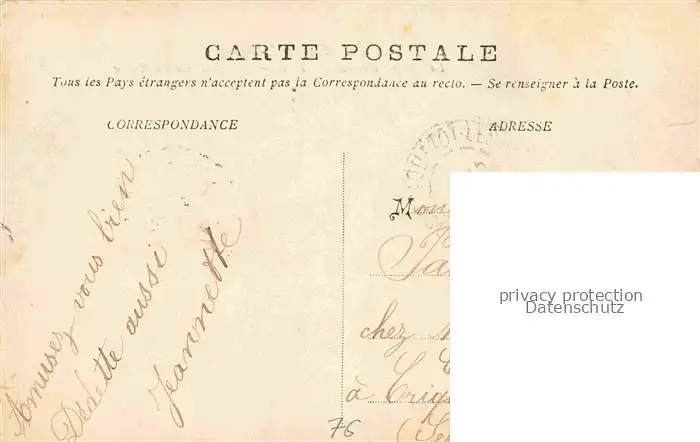 CARTE POSTALE
Tous les Pays étrangers n'acceptent pas la Correspondance au recto. — Se renseigner à la Poste.
CORRESPONDANCE
ADRESSE
Amusez vous bien
Dédette aussi
Jeannette
Mon
chez
à Criq
76
privacy protection
Datenschutz